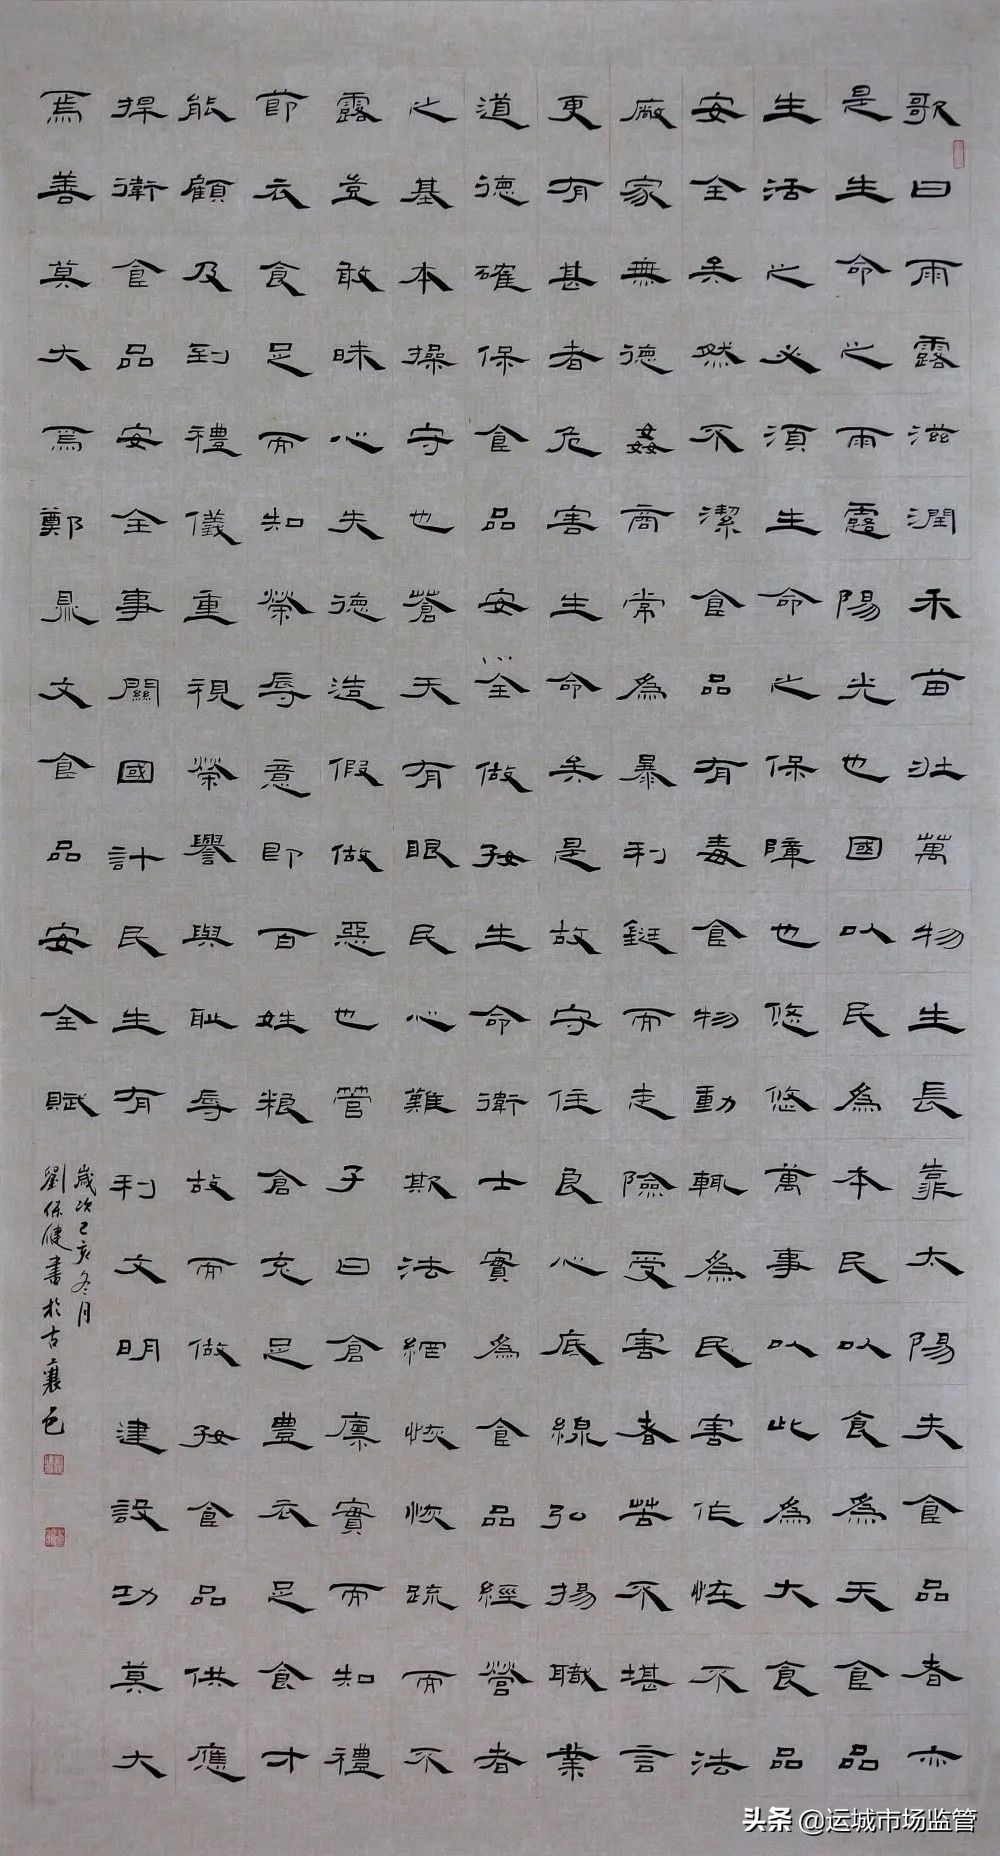 歌曰雨露滋潤禾苗壯萬物生長靠太陽夫食品者亦
是生命之雨露陽光也國以民為本民以食為天食品
生活之必須生命之保障也悠悠萬事以此為大食品
安全矣然不潔食品有毒食物動輒為民害作怪不法
廠家無德姦商常為暴利鋌而走險受害者苦不堪言
更有甚者危害生命矣是故守住良心底線弘揚職業
道德確保食品安全做好生命衛士實為食品經營者
之基本操守也蒼天有眼民心難欺法網恢恢疏而不
露豈敢昧心失德造假做惡也管子曰倉廩實而知禮
節衣食足而知榮辱意即百姓粮倉充足豊衣足食才
能顧及到禮儀重視榮譽與耻辱故而做好食品供應
捍衛食品安全事關國計民生有利文明建設功莫大
焉善莫大焉鄭文食品安全賦
歲次己亥冬月
劉保健書於古襄邑
头条 @运城市场监管